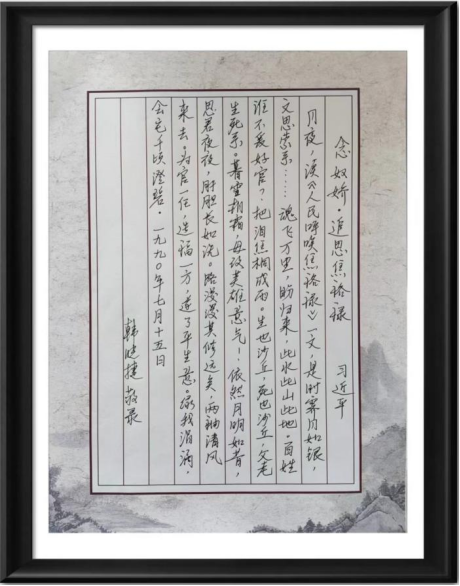 念奴娇·追思焦裕禄 习近平
月夜,读《人民呼唤焦裕禄》一文,是时霁月如银,
文思萦系…… 魂飞万里,盼归来,此水此山此地。百姓
谁不爱好官?把泪焦桐成雨。生也沙丘,死也沙丘,父老
生死系。暮雪朝霜,毋改英雄意气! 依然月明如昔,
思君夜夜,肝胆长如洗。路漫漫其修远矣,两袖清风
来去。为官一任,造福一方,遂了平生意。绿我涓滴,
会它千顷澄碧。一九九〇年七月十五日
韩 捷敬录